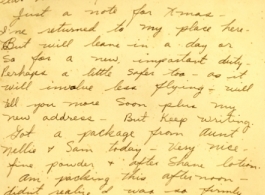 Just a note for Xmas -
I've returned to my place here.
But will leave in a day or
so for a new, important duty.
Perhaps a little safer too - as it
will involve less flying - will
tell you more soon plus my
new address - But keep writing.
Got a package from Aunt
Nellie & Sam today - very nice -
fine powder & after shave lotion.
Am packing this afternoon -
didn't realize I was so firmly